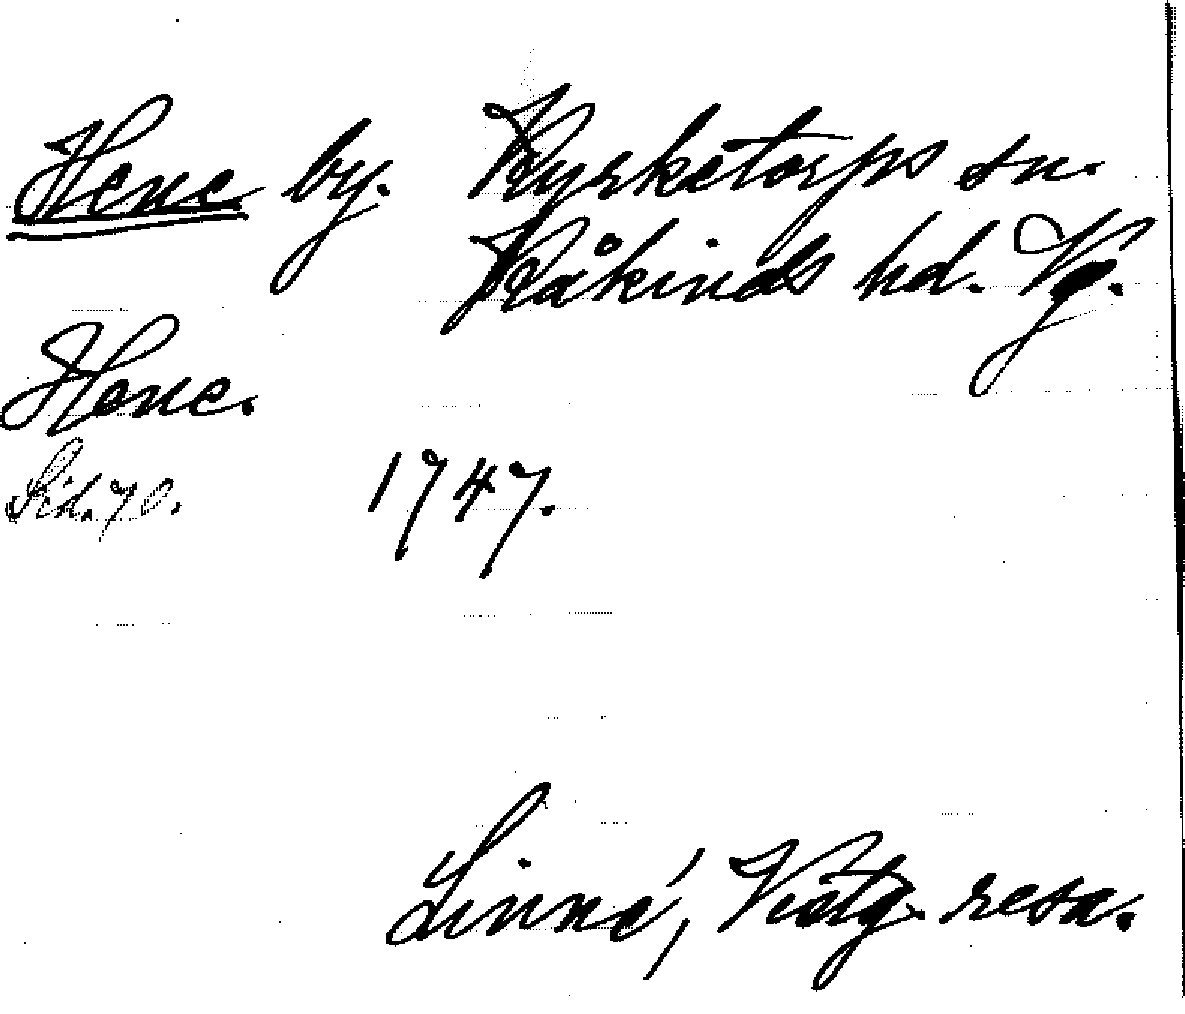 Hene by. Kyrketorps sn.
Kåkinds hd. Vg.
Hene.
Sid. 70. 1747.
Linné, Västg. resa.